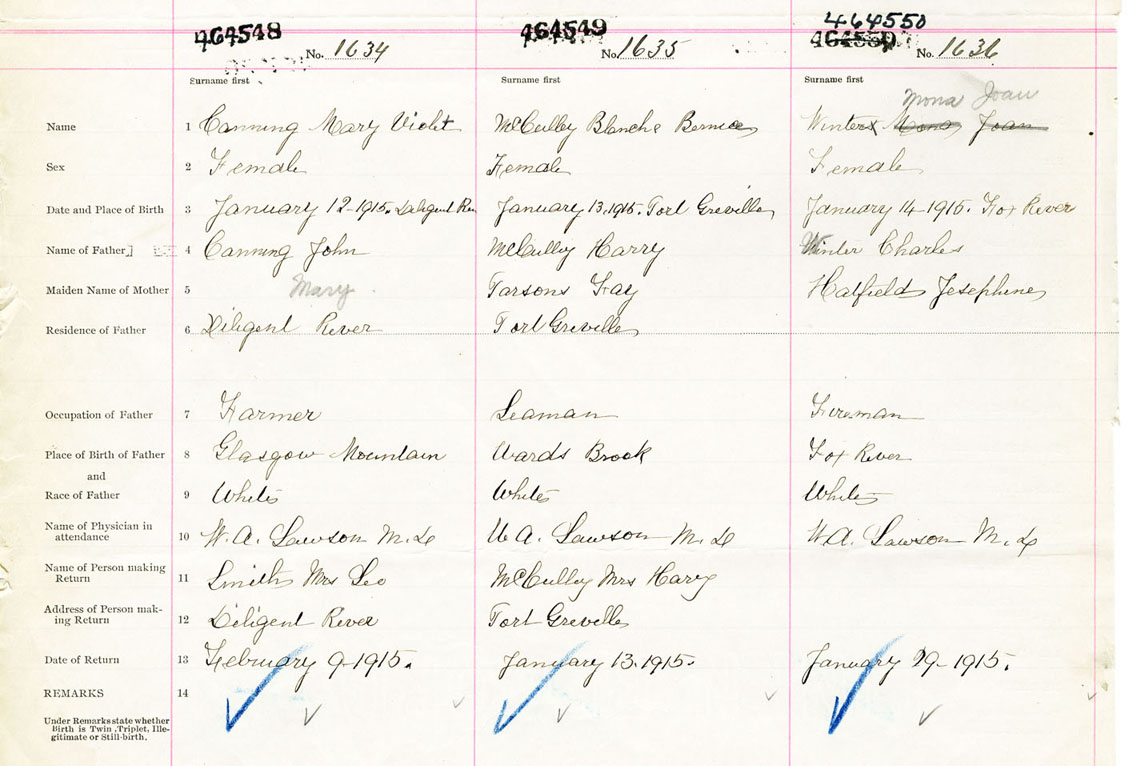 464548 464549 464550
464550
No. 1634 No. 1635 No. 1636
Surname first Surname first Surname first
Mona Joan
Name 1 Canning Mary Violet McCulley Blanche Bernice Winter Mona Joan
Sex 2 Female Female Female
Date and Place of Birth 3 January 12-1915. Diligent River January 13.1915. Port Greville January 14-1915. Fox River
Name of Father 4 Canning John McCulley Harry Winter Charles
Maiden Name of Mother 5 Mary Parsons Fay Hatfield Josephine
Residence of Father 6 Diligent River Port Greville
Occupation of Father 7 Farmer Seaman Fireman
Place of Birth of Father 8 Glasgow Mountain Wards Brook Fox River
and
Race of Father 9 White White White
Name of Physician in
attendance 10 W. A. Lawson M. D W A. Lawson M. D W A. Lawson M. D
Name of Person making
Return 11 Smith Mrs Leo McCulley Mrs Harry
Address of Person mak-
ing Return 12 Diligent River Port Greville
Date of Return 13 February 9-1915. January 13.1915. January 29-1915.
REMARKS 14
Under Remarks state whether
Birth is Twin, Triplet, Ille-
gitimate or Still-birth.